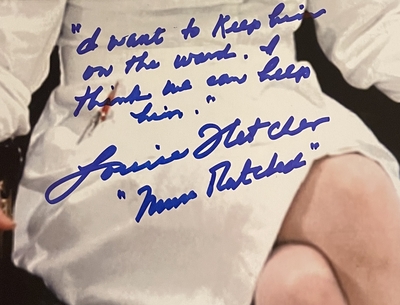 "I want to keep him
on the ward. I
think we can help
him."
Louise Fletcher
"Nurse Ratched"